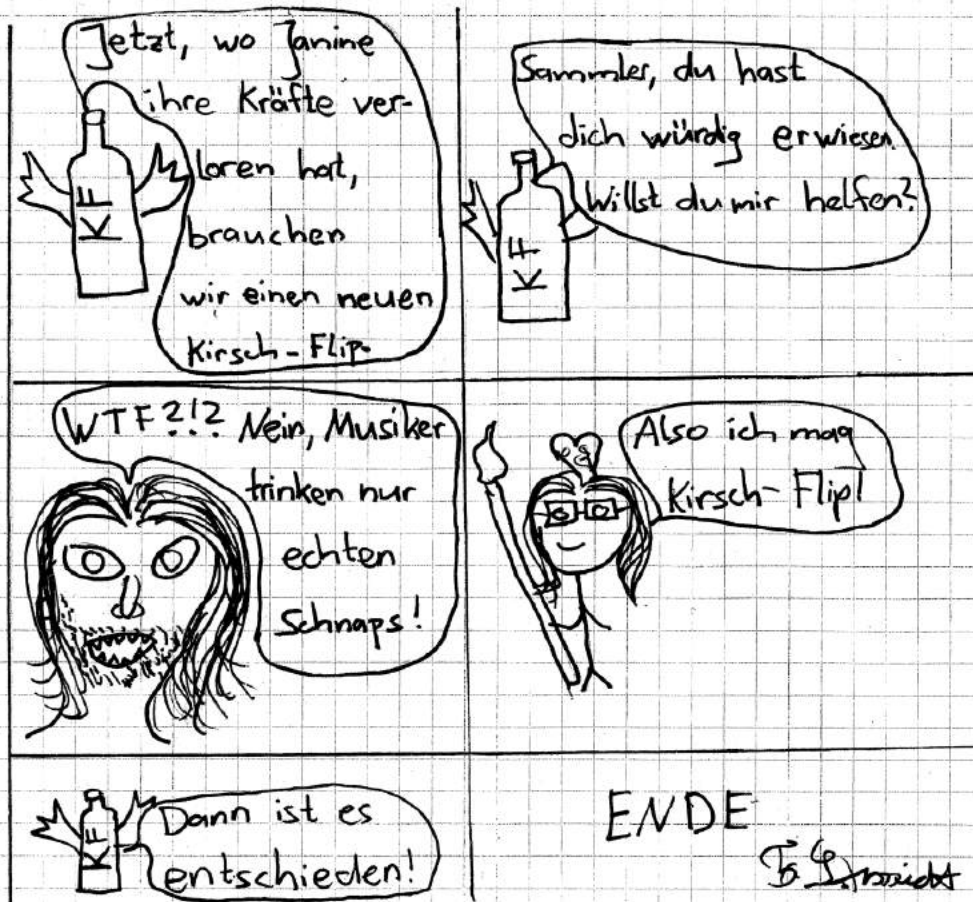 Jetzt, wo Janine
ihre Kräfte ver-
loren hat,
brauchen
wir einen neuen
Kirsch-Flip.
KF
Sammler, du hast
dich würdig erwiesen.
Willst du mir helfen?
KF
WTF?!? Nein, Musiker
trinken nur
echten
Schnaps!
Also ich mag
Kirsch-Flip!
Dann ist es
entschieden!
KF
ENDE